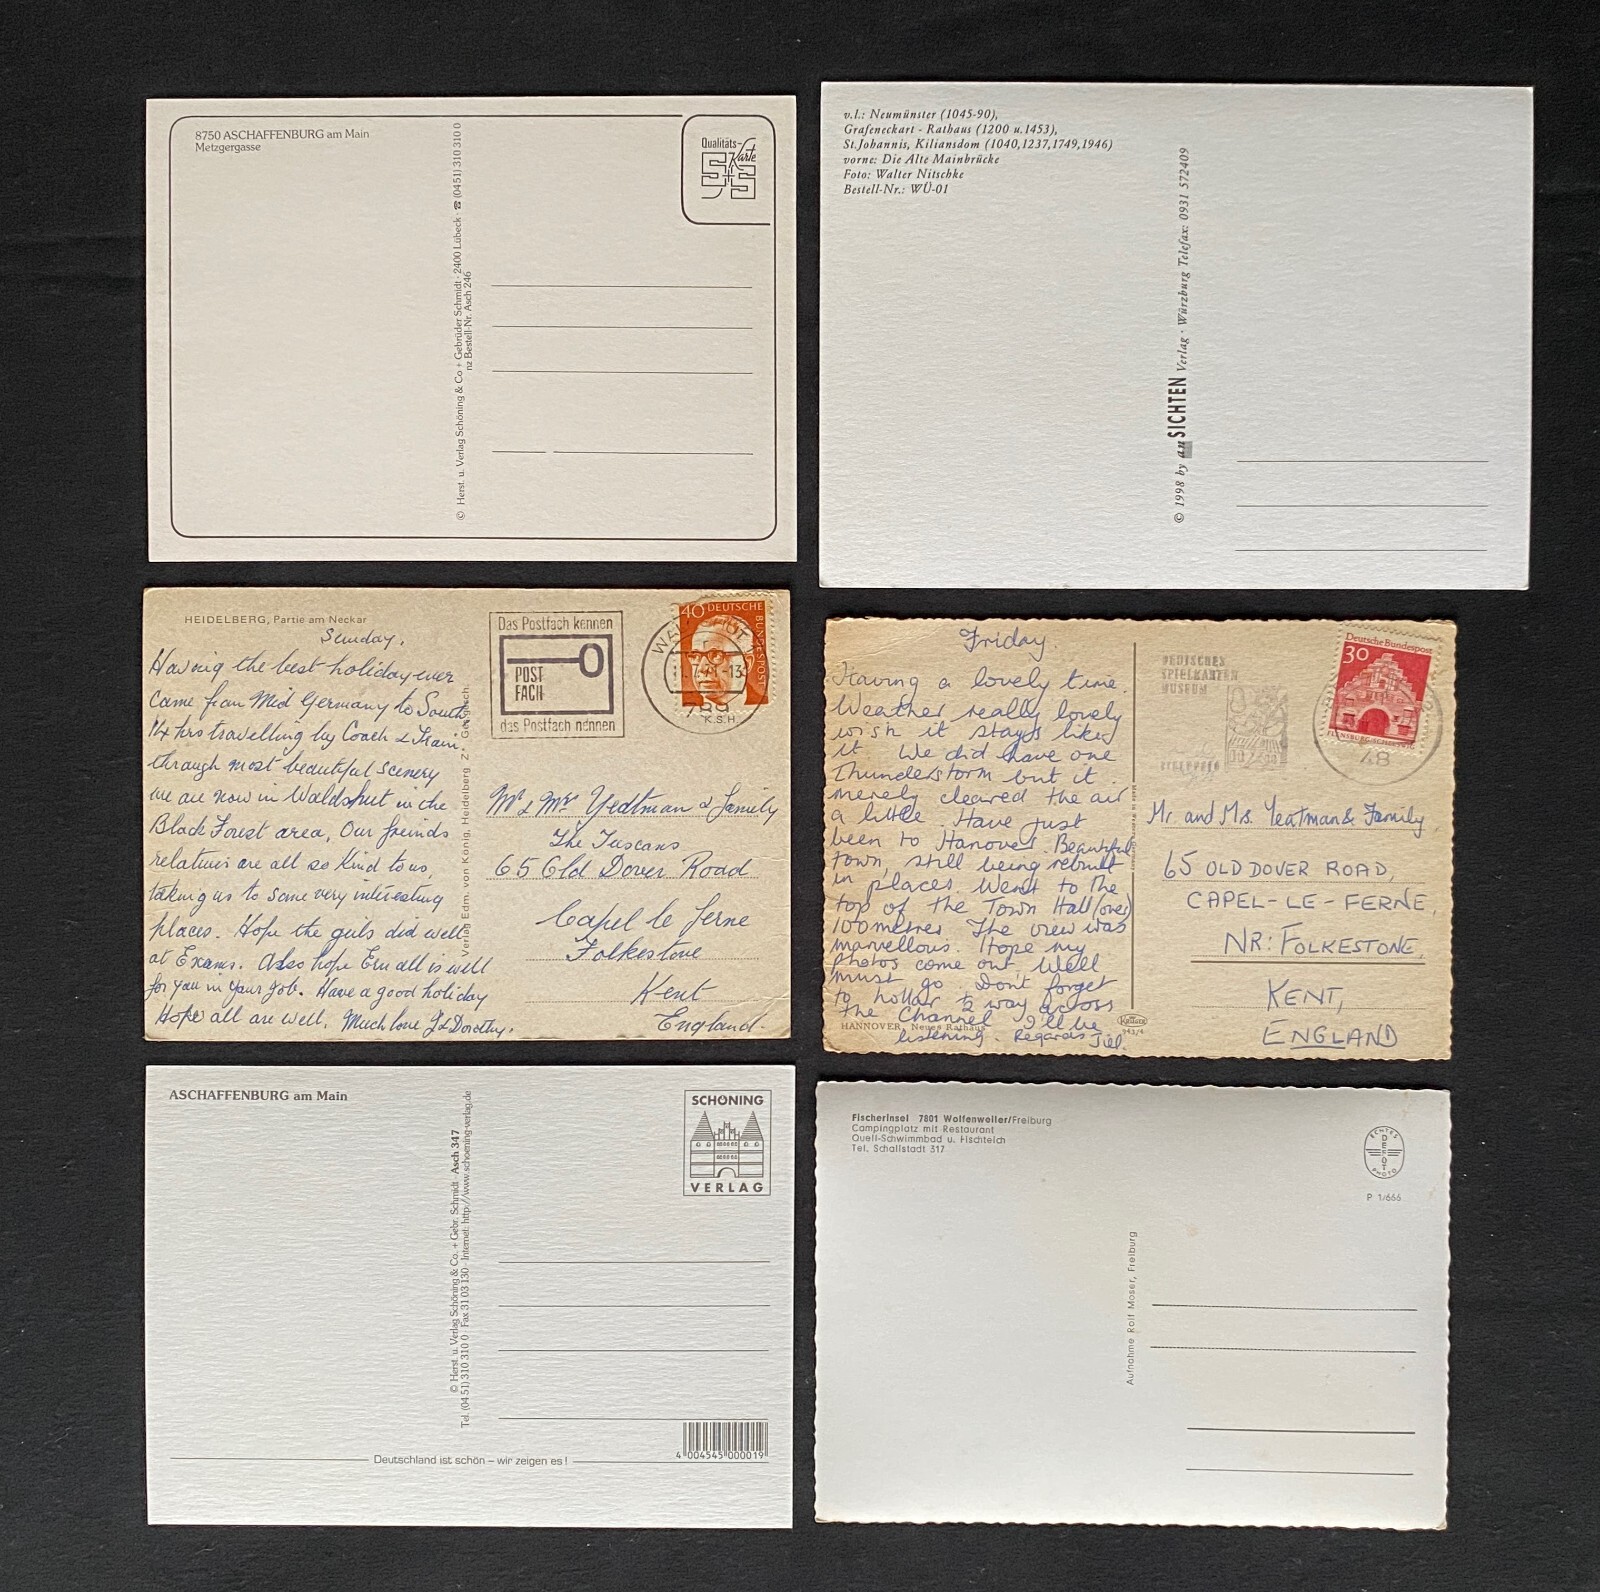 8750 ASCHAFFENBURG am Main
Metzgergasse
© Herst. u. Verlag Schöning & Co + Gebrüder Schmidt · 2400 Lübeck · ☎ (04 51) 310 310 0
nz Bestell-Nr. Asch 246
Qualitäts-
Karte
S+S
v.l.: Neumünster (1045-90),
Grafeneckart - Rathaus (1200 u.1453),
St.Johannis, Kiliansdom (1040,1237,1749,1946)
vorne: Die Alte Mainbrücke
Foto: Walter Nitschke
Bestell-Nr.: WÜ-01
© 1998 by anSICHTEN Verlag · Würzburg Telefax: 0931 572409
HEIDELBERG, Partie am Neckar
Sunday.
Having the best holiday ever
came from Mid Germany to South
14 hrs travelling by Coach & Train,
through most beautiful scenery
we are now in Waldshut in the
Black Forest area, Our freinds
relatives are all so kind to us,
taking us to some very interesting
places. Hope the girls did well
at Exams. Also hope Ern all is well
for you in your job. Have a good holiday
Hope all are well. Much love J & Dorothy.
Verlag Edm. von König, Heidelberg
Das Postfach kennen
POST
FACH
das Postfach nennen
789
40 DEUTSCHE
BUNDESPOST
Mr & Mrs Yeatman & Family
The Tuscans
65 Old Dover Road
Capel le Ferne
Folkestone
Kent
England.
Friday.
Having a lovely time.
Weather really lovely
wish it stays like
it. We did have one
thunderstorm but it
merely cleared the air
a little. Have just
been to Hanover. Beautiful
town, still being rebuilt
in places. Went to the
top of the Town Hall (over)
100 metres. The view was
marvellous. Hope my
photos come out. Well
must go. Don't forget
to hollar ½ way across
the Channel I'll be
listening. Regards Jill.
HANNOVER, Neues Rathaus
Krüger
943/4
DEUTSCHES
SPIELKARTEN
MUSEUM
Deutsche Bundespost
30
48
Mr. and Mrs. Yeatman & Family
65 OLD DOVER ROAD,
CAPEL-LE-FERNE,
NR: FOLKESTONE,
KENT,
ENGLAND
ASCHAFFENBURG am Main
© Herst. u. Verlag Schöning & Co. + Gebr. Schmidt · Asch 347
Tel. (04 51) 310 310 0 · Fax 31 03 130 · Internet: http://www.schoening-verlag.de
SCHÖNING
VERLAG
4 004545 000019
Deutschland ist schön – wir zeigen es !
Fischerinsel 7801 Wolfenweiler/Freiburg
Campingplatz mit Restaurant
Quell-Schwimmbad u. Fischteich
Tel. Schallstadt 317
Aufnahme Rolf Moser, Freiburg
ECHTES
PHOTO
P 1/666